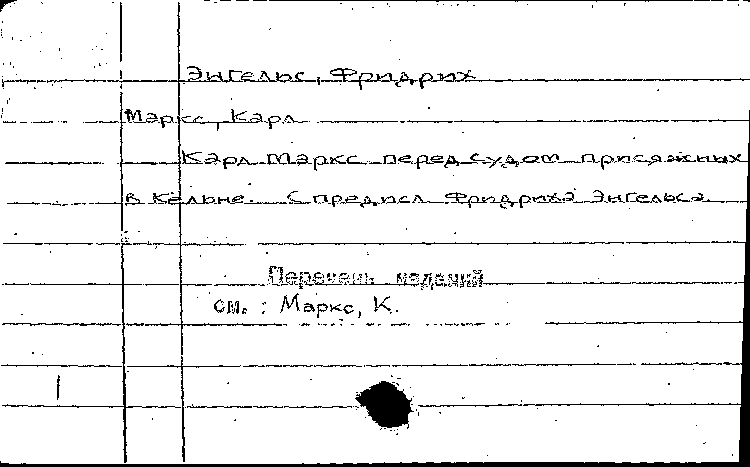 Энгельс, Фридрих
Маркс, Карл
Карл Маркс перед судом присяжных
в Кельне. С предисл. Фридриха Энгельса.
Перечень изданий
см. : Маркс, К.